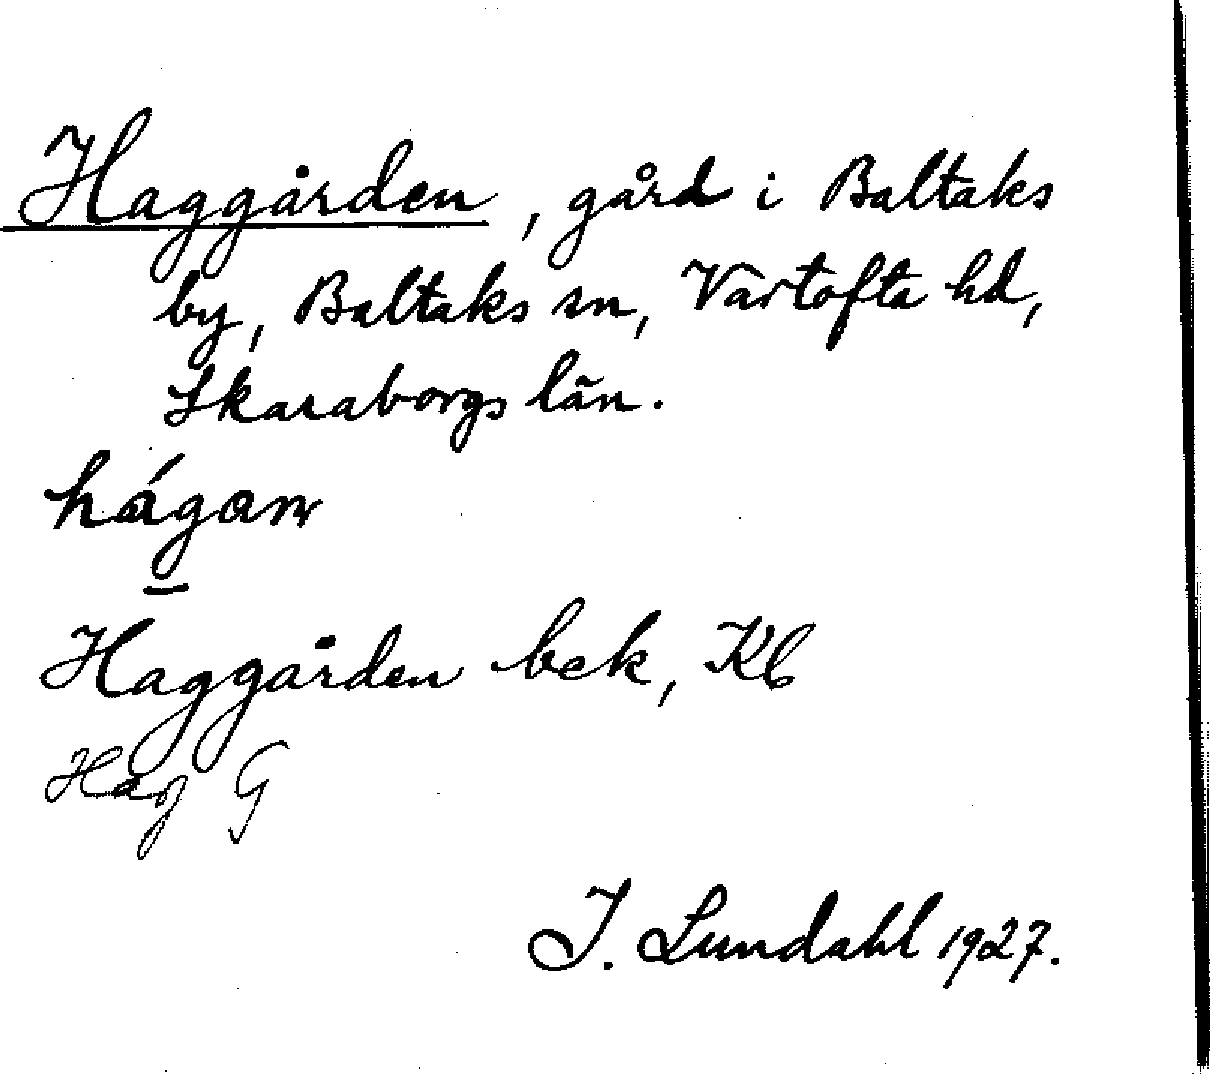 Haggården, gård i Baltaks
by, Baltaks sn, Vartofta hd,
Skaraborgs län.
hágan
Haggården bek, Kb
Hag G
I. Lundahl 1927.